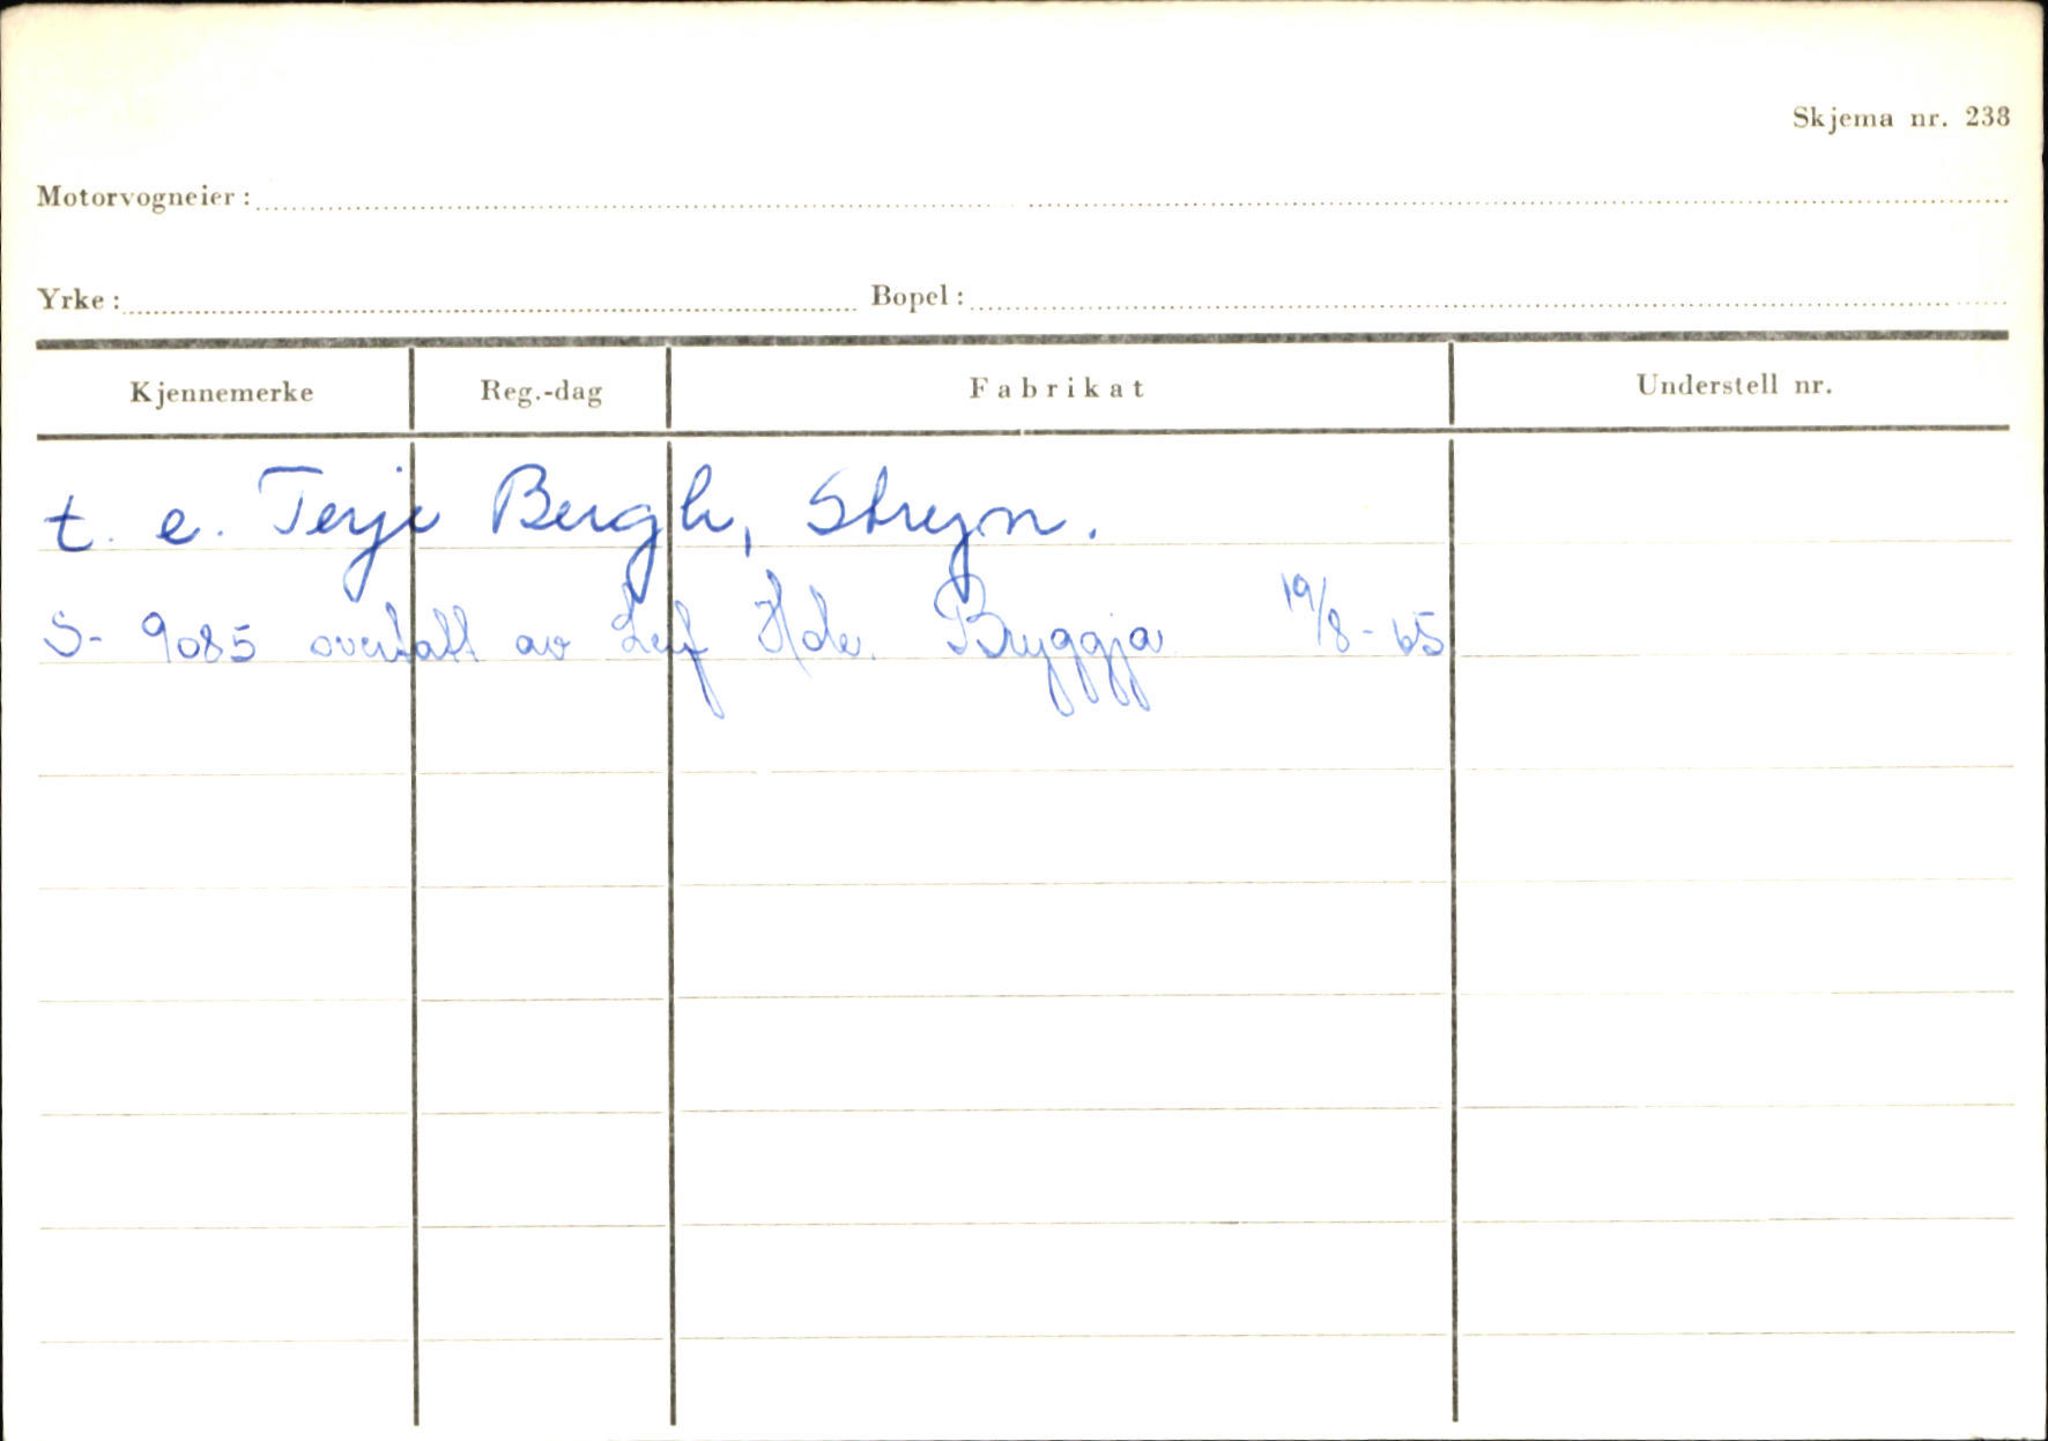 Skjema nr. 238
Motorvogneier:
Yrke: Bopel:
Kjennemerke Reg.-dag Fabrikat Understell nr.
t. e. Terje Bergh, Stryn.
S- 9085 overtatt av Leif Hole. Bryggja 19/8-65